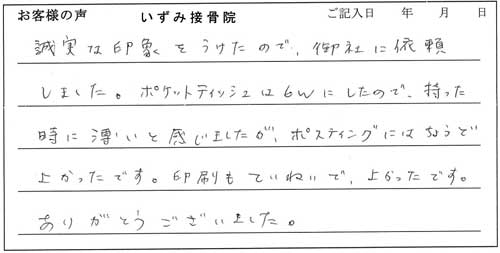 お客様の声 いずみ接骨院 ご記入日 年 月 日
誠実な印象をうけたので、御社に依頼
しました。ポケットティッシュは6Wにしたので、持った
時に薄いと感じましたが、ポスティングにはちょうど
よかったです。印刷もていねいで、よかったです。
ありがとうございました。